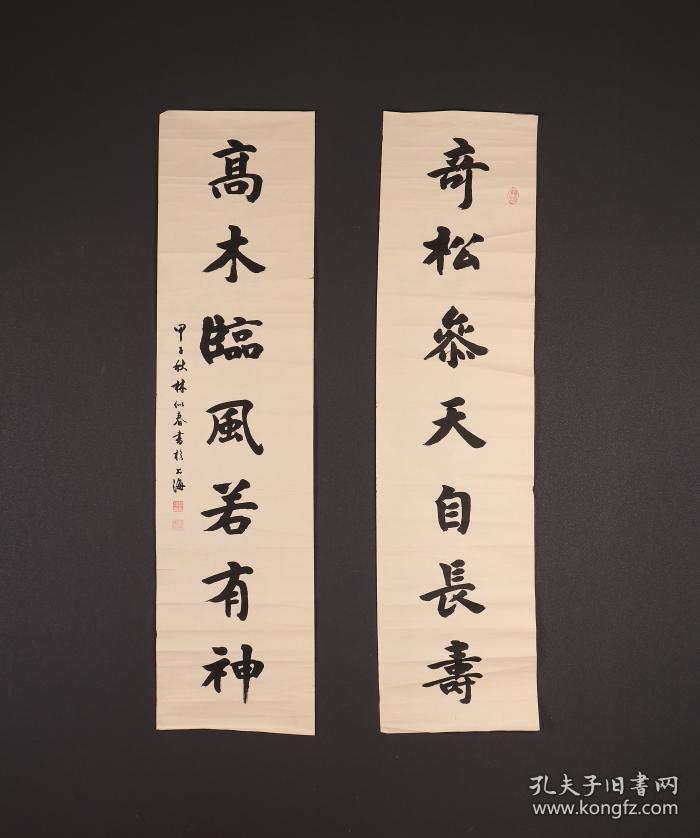 奇松叅天自長壽
高木臨風若有神
甲子秋林似春書於上海
孔夫子旧書网
www.kongfz.com